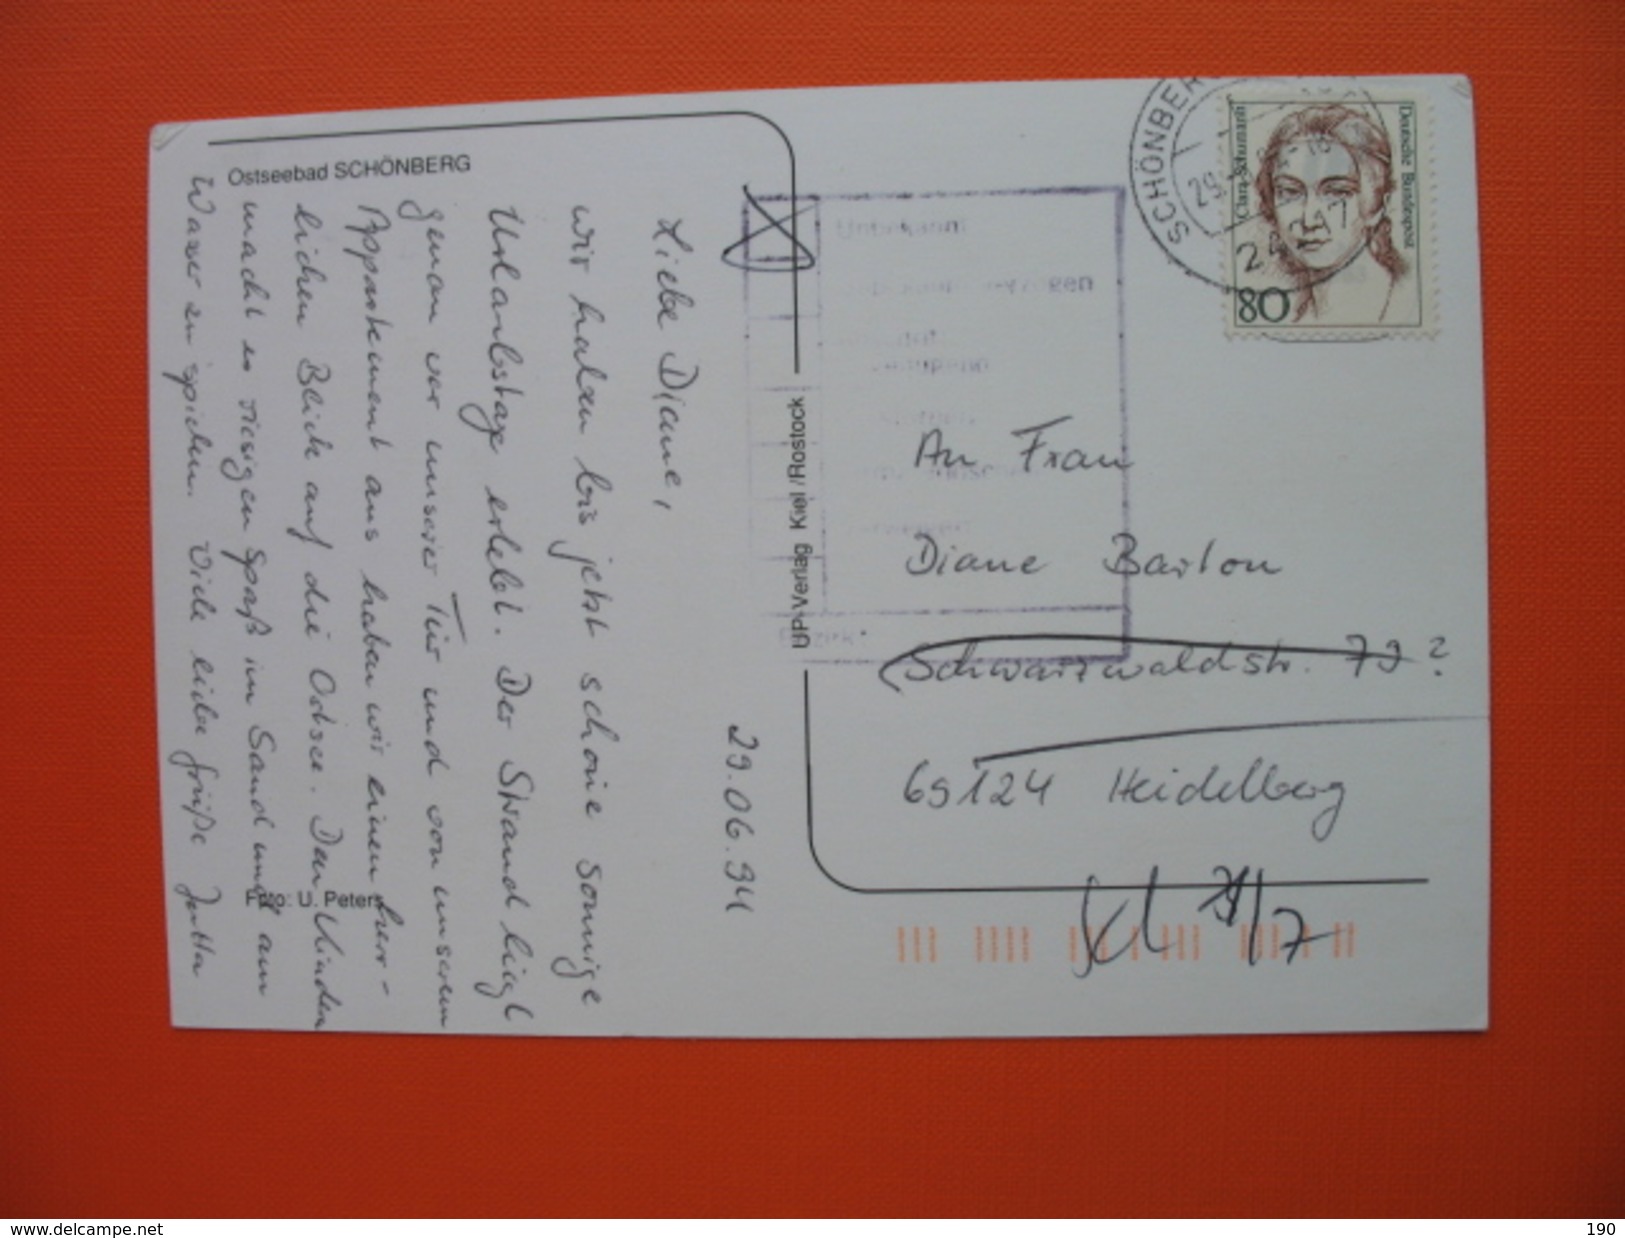 Ostseebad SCHÖNBERG
29.06.94
Liebe Diane,
wir haben bis jetzt schöne sonnige
Urlaubstage erlebt. Der Strand liegt
genau vor unserer Tür und von unserem
Appartement aus haben wir einen herr-
lichen Blick auf die Ostsee. Den Kindern
macht es riesigen Spaß im Sand und am
Wasser zu spielen. Viele liebe Grüße Jutta
Foto: U. Peters
UP-Verlag Kiel/Rostock
Unbekannt
Bezirk
SCHÖNBERG
Deutsche Bundespost
Clara Schumann
80
An Frau
Diane Barton
Schwarzwaldstr. 79?
69124 Heidelberg
www.delcampe.net
190